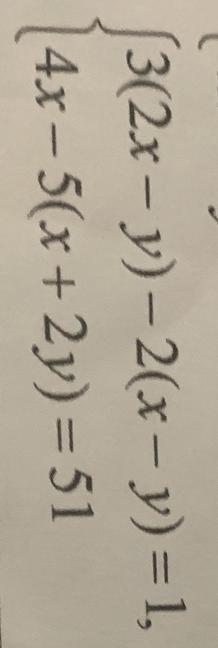 3(2x − y) − 2(x − y) = 1,
4x − 5(x + 2y) = 51